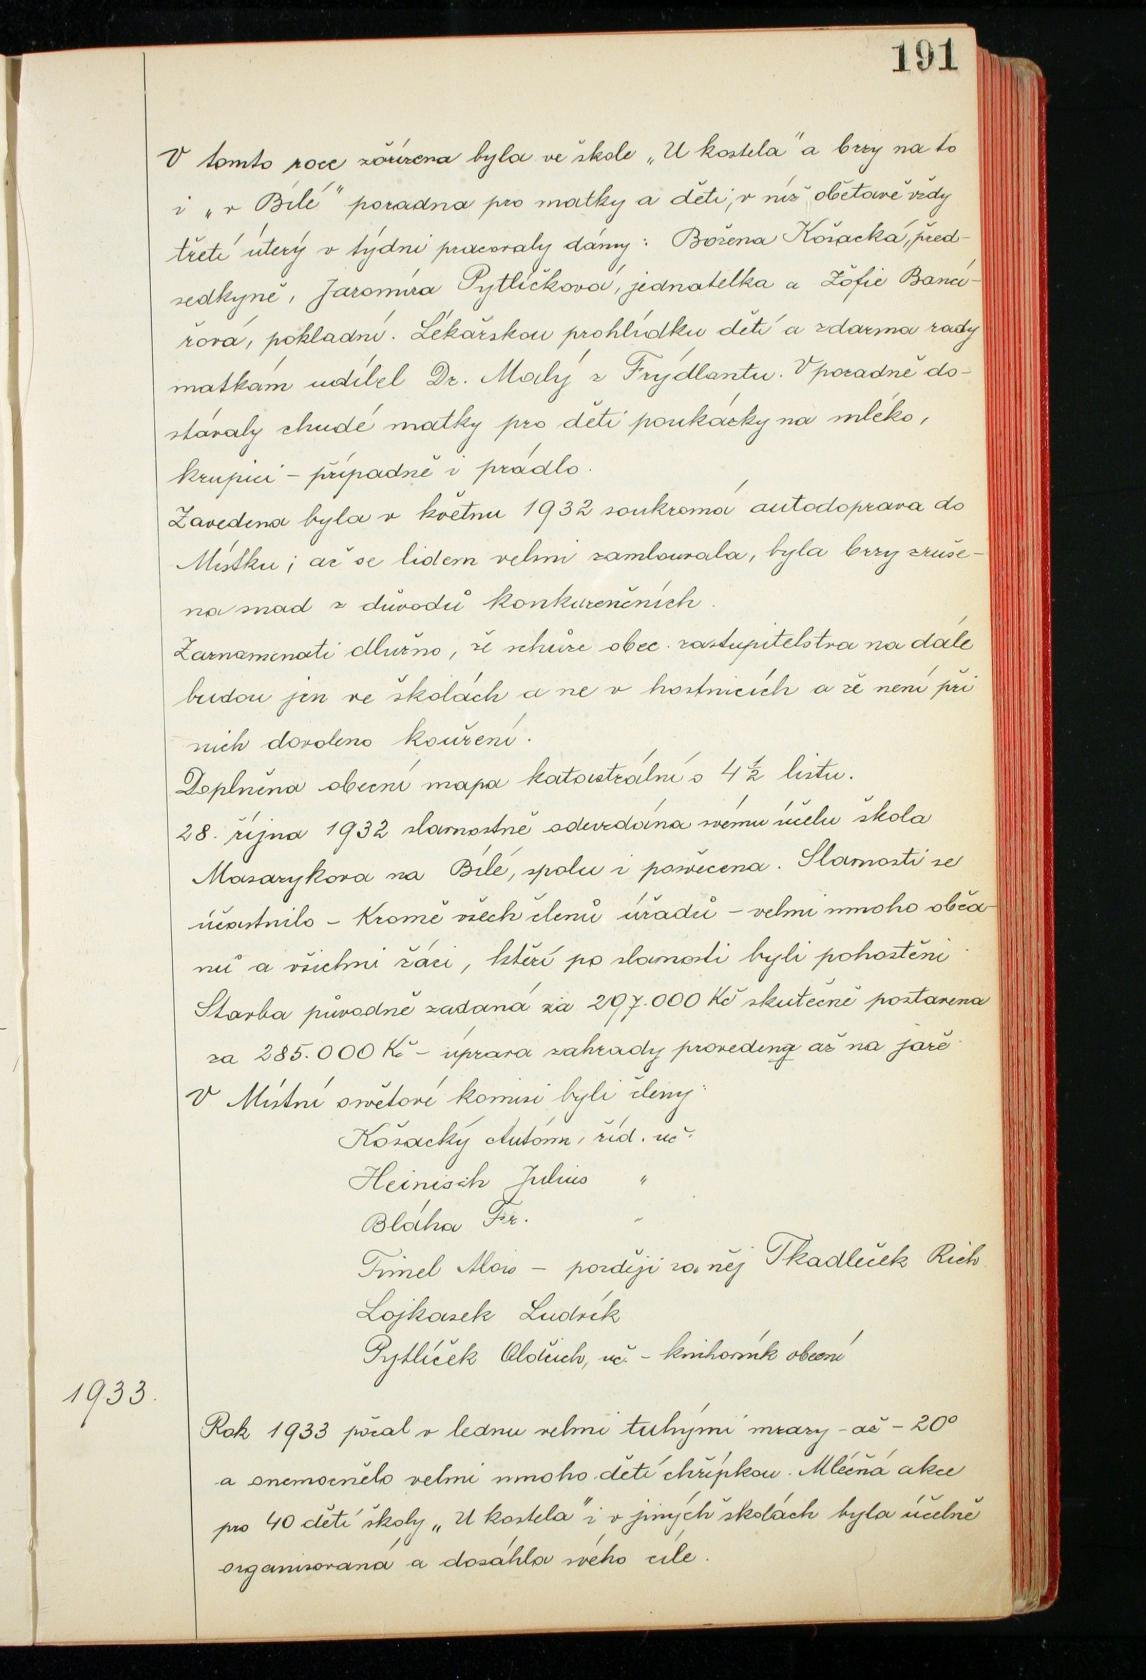 191
V tomto roce zařízena byla ve škole „U kostela" a brzy na to
i „v Bílé" poradna pro matky a děti, v níž obětavě vždy
třetí úterý v týdni pracovaly dámy: Božena Košacká, před-
sedkyně, Jaromíra Pytlíčková, jednatelka a Žofie Banci-
řová, pokladní. Lékařskou prohlídku dětí a zdarma rady
matkám udílel Dr. Malý z Frýdlantu. V poradně do-
stávaly chudé matky pro děti poukázky na mléko,
krupici – případně i prádlo.
Zavedena byla v květnu 1932 soukromá autodoprava do
Místku; ač se lidem velmi zamlouvala, byla brzy zruše-
na snad z důvodů konkurenčních.
Zaznamenati dlužno, že schůze obec. zastupitelstva na dále
budou jen ve školách a ne v hostincích a že není při
nich dovoleno kouření.
Doplněna obecní mapa katastrální o 4 ½ listu.
28. října 1932 slavnostně odevzdána svému účelu škola
Masarykova na Bílé, spolu i posvěcena. Slavnosti se
účastnilo – kromě všech členů úřadů – velmi mnoho obča-
nů a všichni žáci, kteří po slavnosti byli pohoštěni
Stavba původně zadaná za 297.000 Kč skutečně postavena
za 285.000 Kč – úprava zahrady provedena až na jaře
V Místní osvětové komisi byli členy:
Košacký Antonín, říd. uč.
Heinisch Julius "
Bláha Fr. "
Trinel Alois – později za něj Tkadleček Rich
Lojkasek Ludvík
Pytlíček Oldřich, uč. – knihovník obecní
1933.
Rok 1933 počal v lednu velmi tuhými mrazy – až – 20°
a onemocnělo velmi mnoho dětí chřipkou. Mléčná akce
pro 40 dětí školy „U kostela" i v jiných školách byla účelně
organisovaná a dosáhla svého cíle.